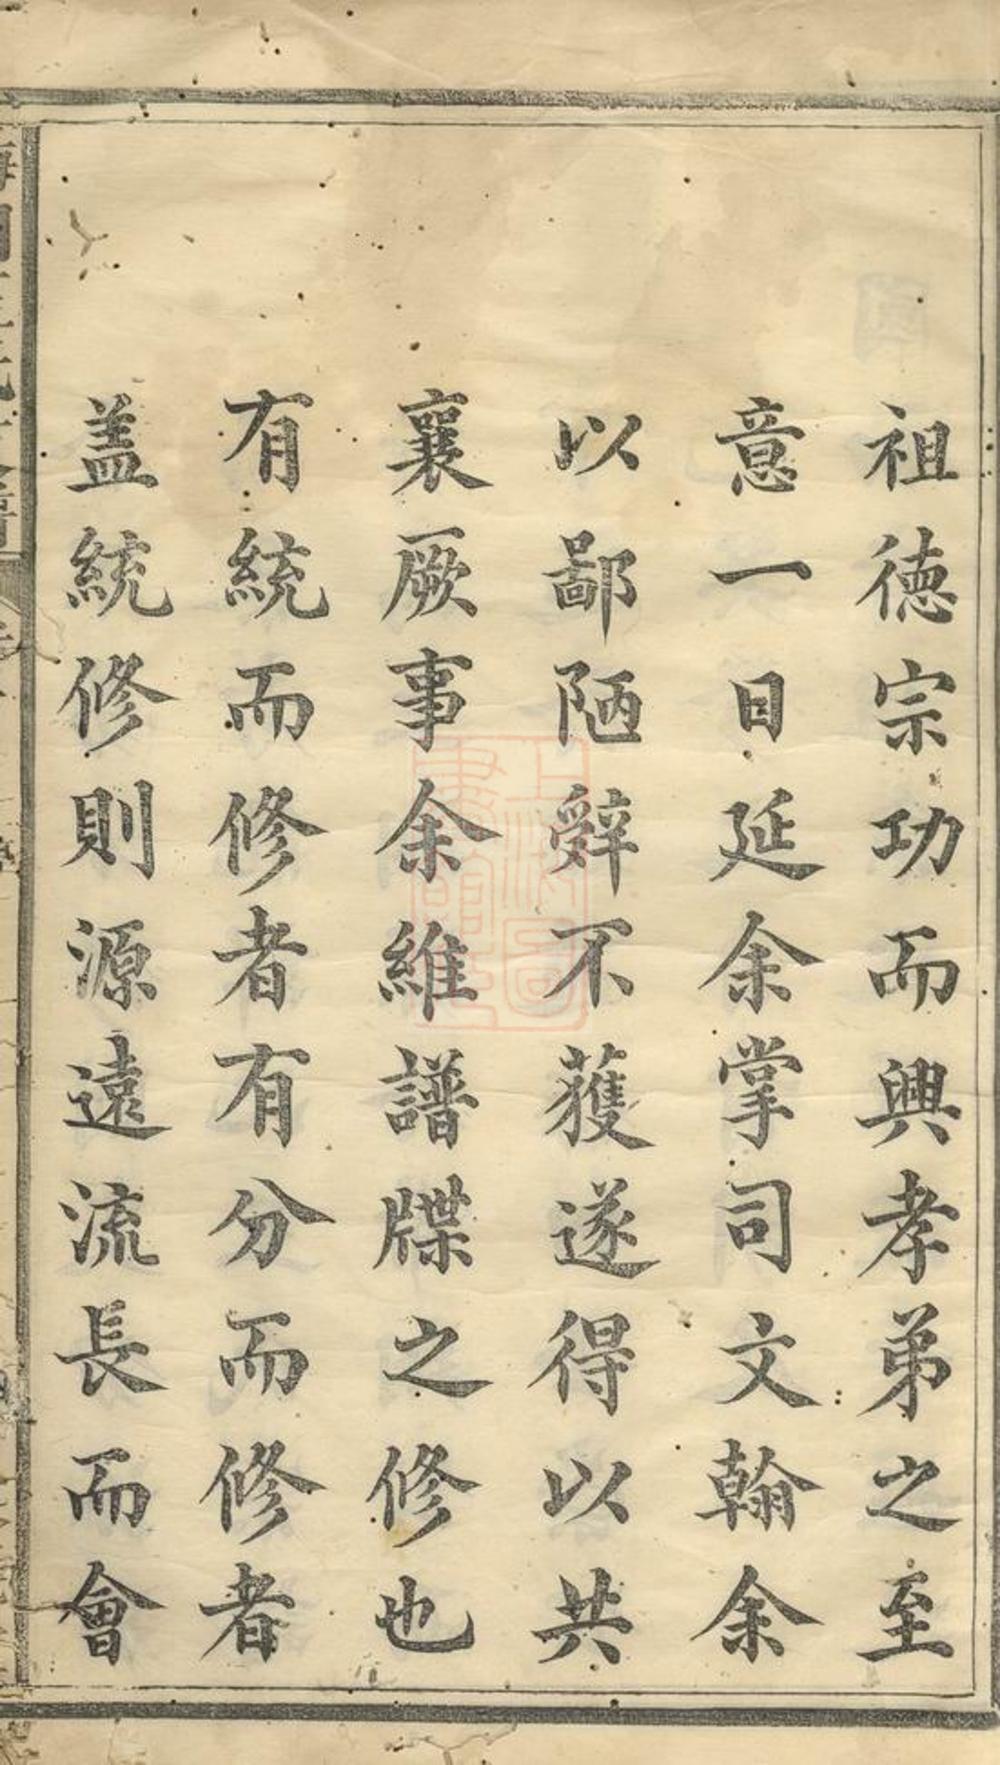 祖徳宗功而興孝弟之至
意一日延余掌司文翰余
以鄙陋辭不獲遂得以共
襄厥事余維譜牒之修也
有統而修者有分而修者
盖統修則源遠流長而會